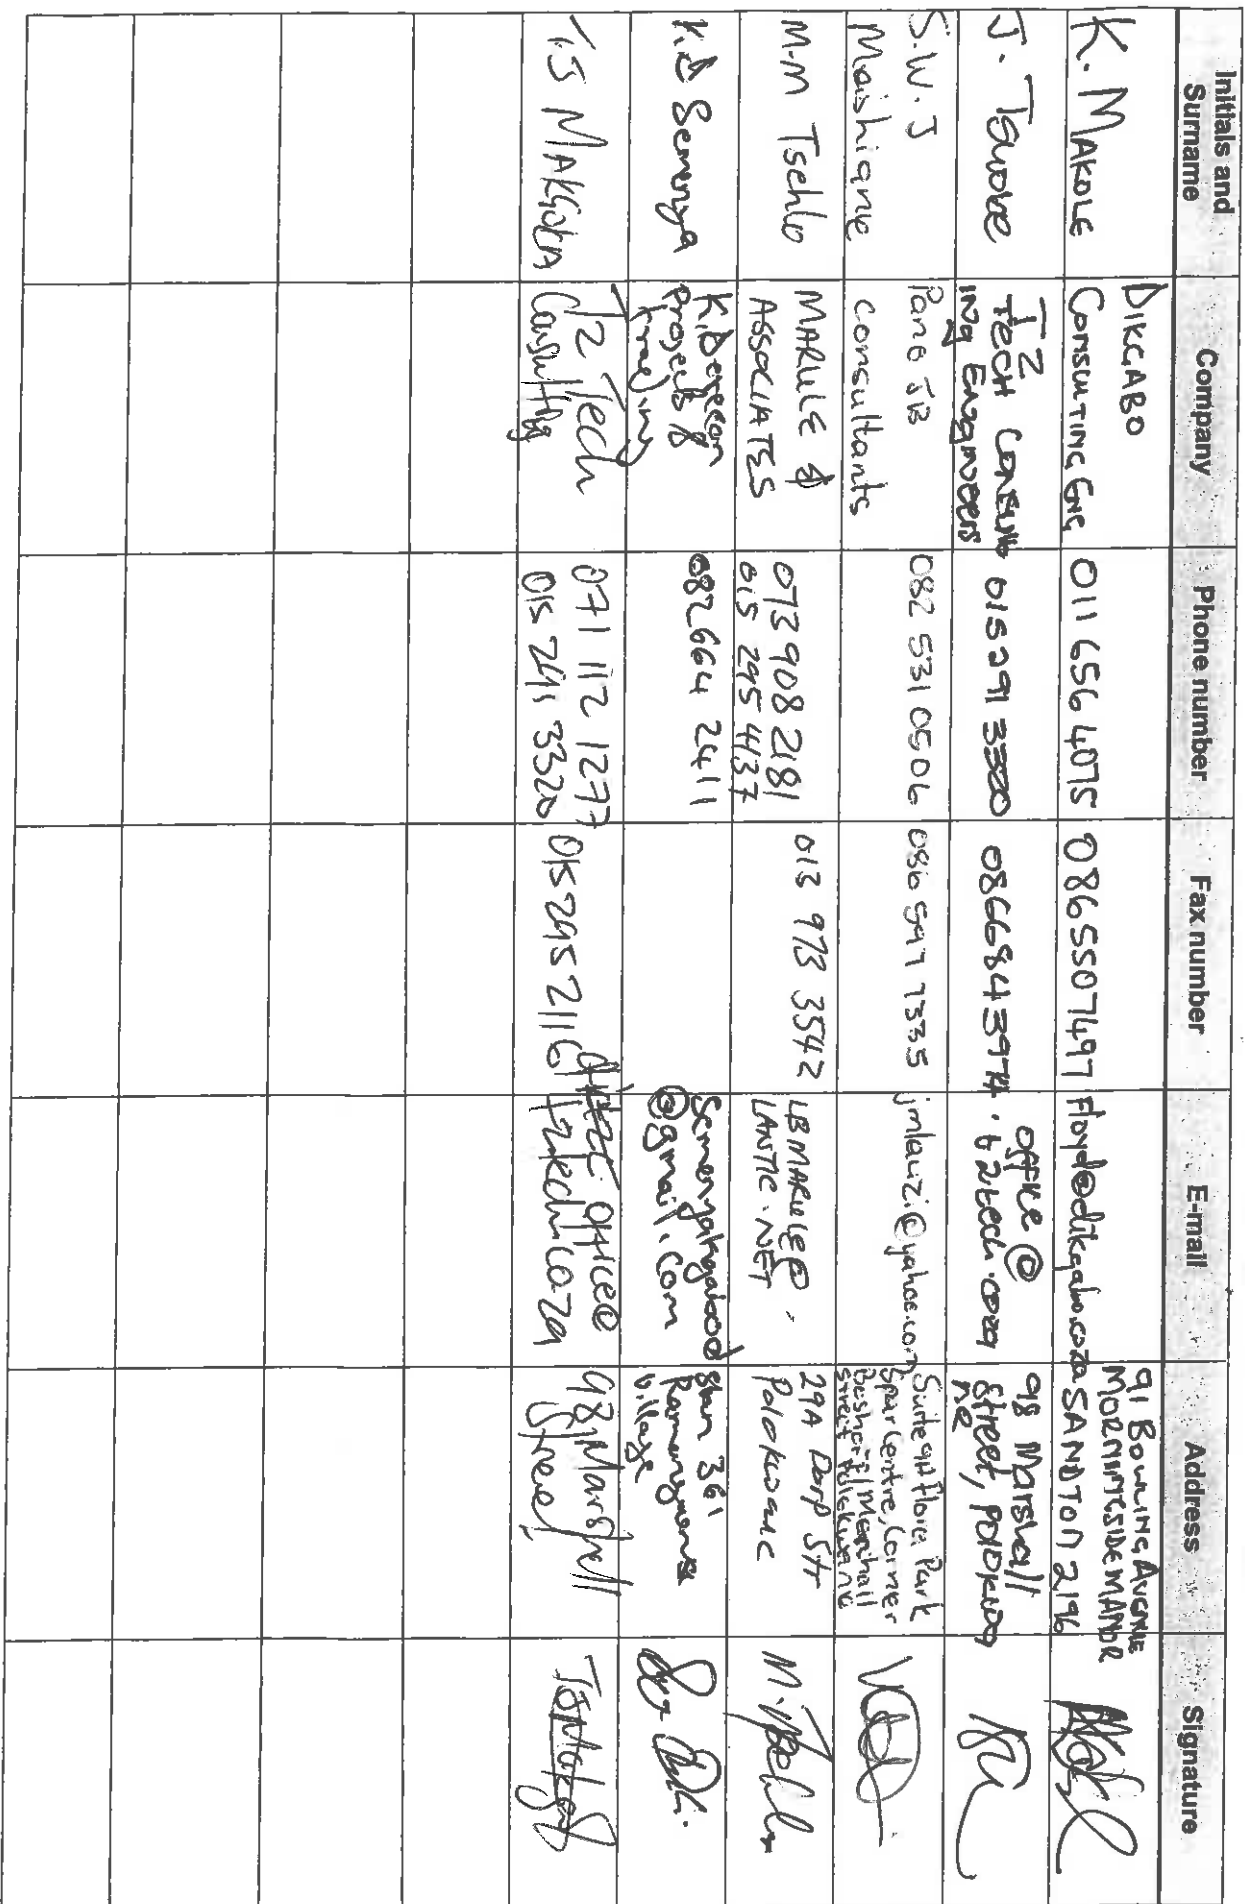 Initials and Surname Company Phone number Fax number E-mail Address Signature
K. MAKOLE DIKGABO CONSULTING ENG 011 656 4075 0865507497 Floyd@dikgabo.coza 91 BOWLING AVENUE MORNINGSIDE MANOR SANDTON 2196
J. Tsuobe T2 TECH CONSULTING Engineers 015 291 3320 0866843974 office@t2tech.coza 98 Marshall street, POLOKWANE
S.W.J Mashigne Pane JB Consultants 082 531 0506 086 597 7335 jmlauzi@yahoo.com Flora Park Spar Centre, Corner Marshall street Polokwane
M.M Tsehlo MARULE & ASSOCIATES 073 908 2181 015 295 4137 013 973 3542 LBMARULE@LANTIC.NET 29A Dorp Str Polokwane
K.D Semenya Projects & Trading 082 664 2411 @gmail.com Stan 361 village
T.S MAKGOBA T2 Tech Consulting 071 112 1277 015 291 3320 015 295 2116 office@t2tech.co.za 98 Marshall Street